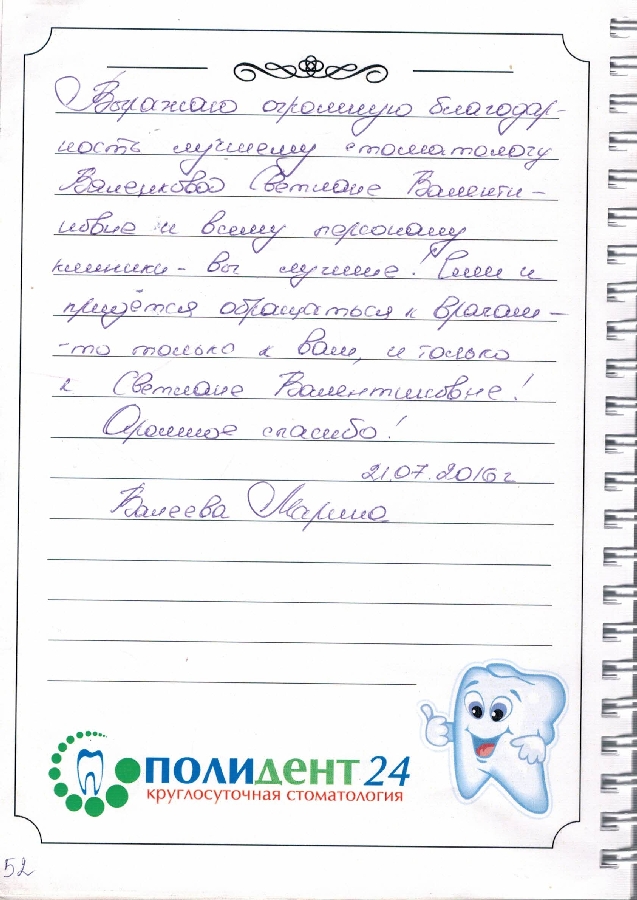 Выражаю огромную благодар-
ность лучшему стоматологу
Валенковой Светлане Валенти-
новне и всему персоналу
клиники - вы лучшие! Если и
придётся обращаться к врачам -
-то только к вам, и только
к Светлане Валентиновне!
Огромное спасибо!
21.07.2016г.
Валеева Марина
ПОЛИДЕНТ 24
круглосуточная стоматология
52